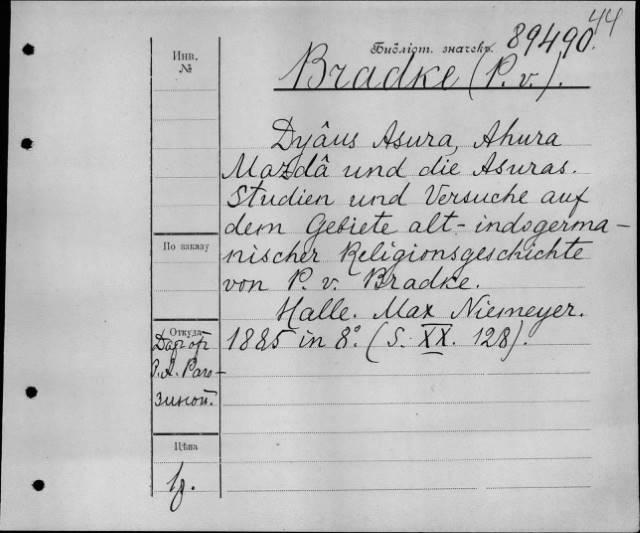 44
Инв.
№
Библіот. значекъ. 89490.
Bradke (P. v.).
Dyâus Asura, Ahura
Mazdâ und die Asuras.
Studien und Versuche auf
dem Gebiete alt-indogerma-
nischer Religionsgeschichte
von P. v. Bradke.
Halle. Max Niemeyer.
1885 in 8°. (S. XX. 128).
По заказу
Откуда
Даръ отъ
Р. А. Раго-
зиной.
Цѣна